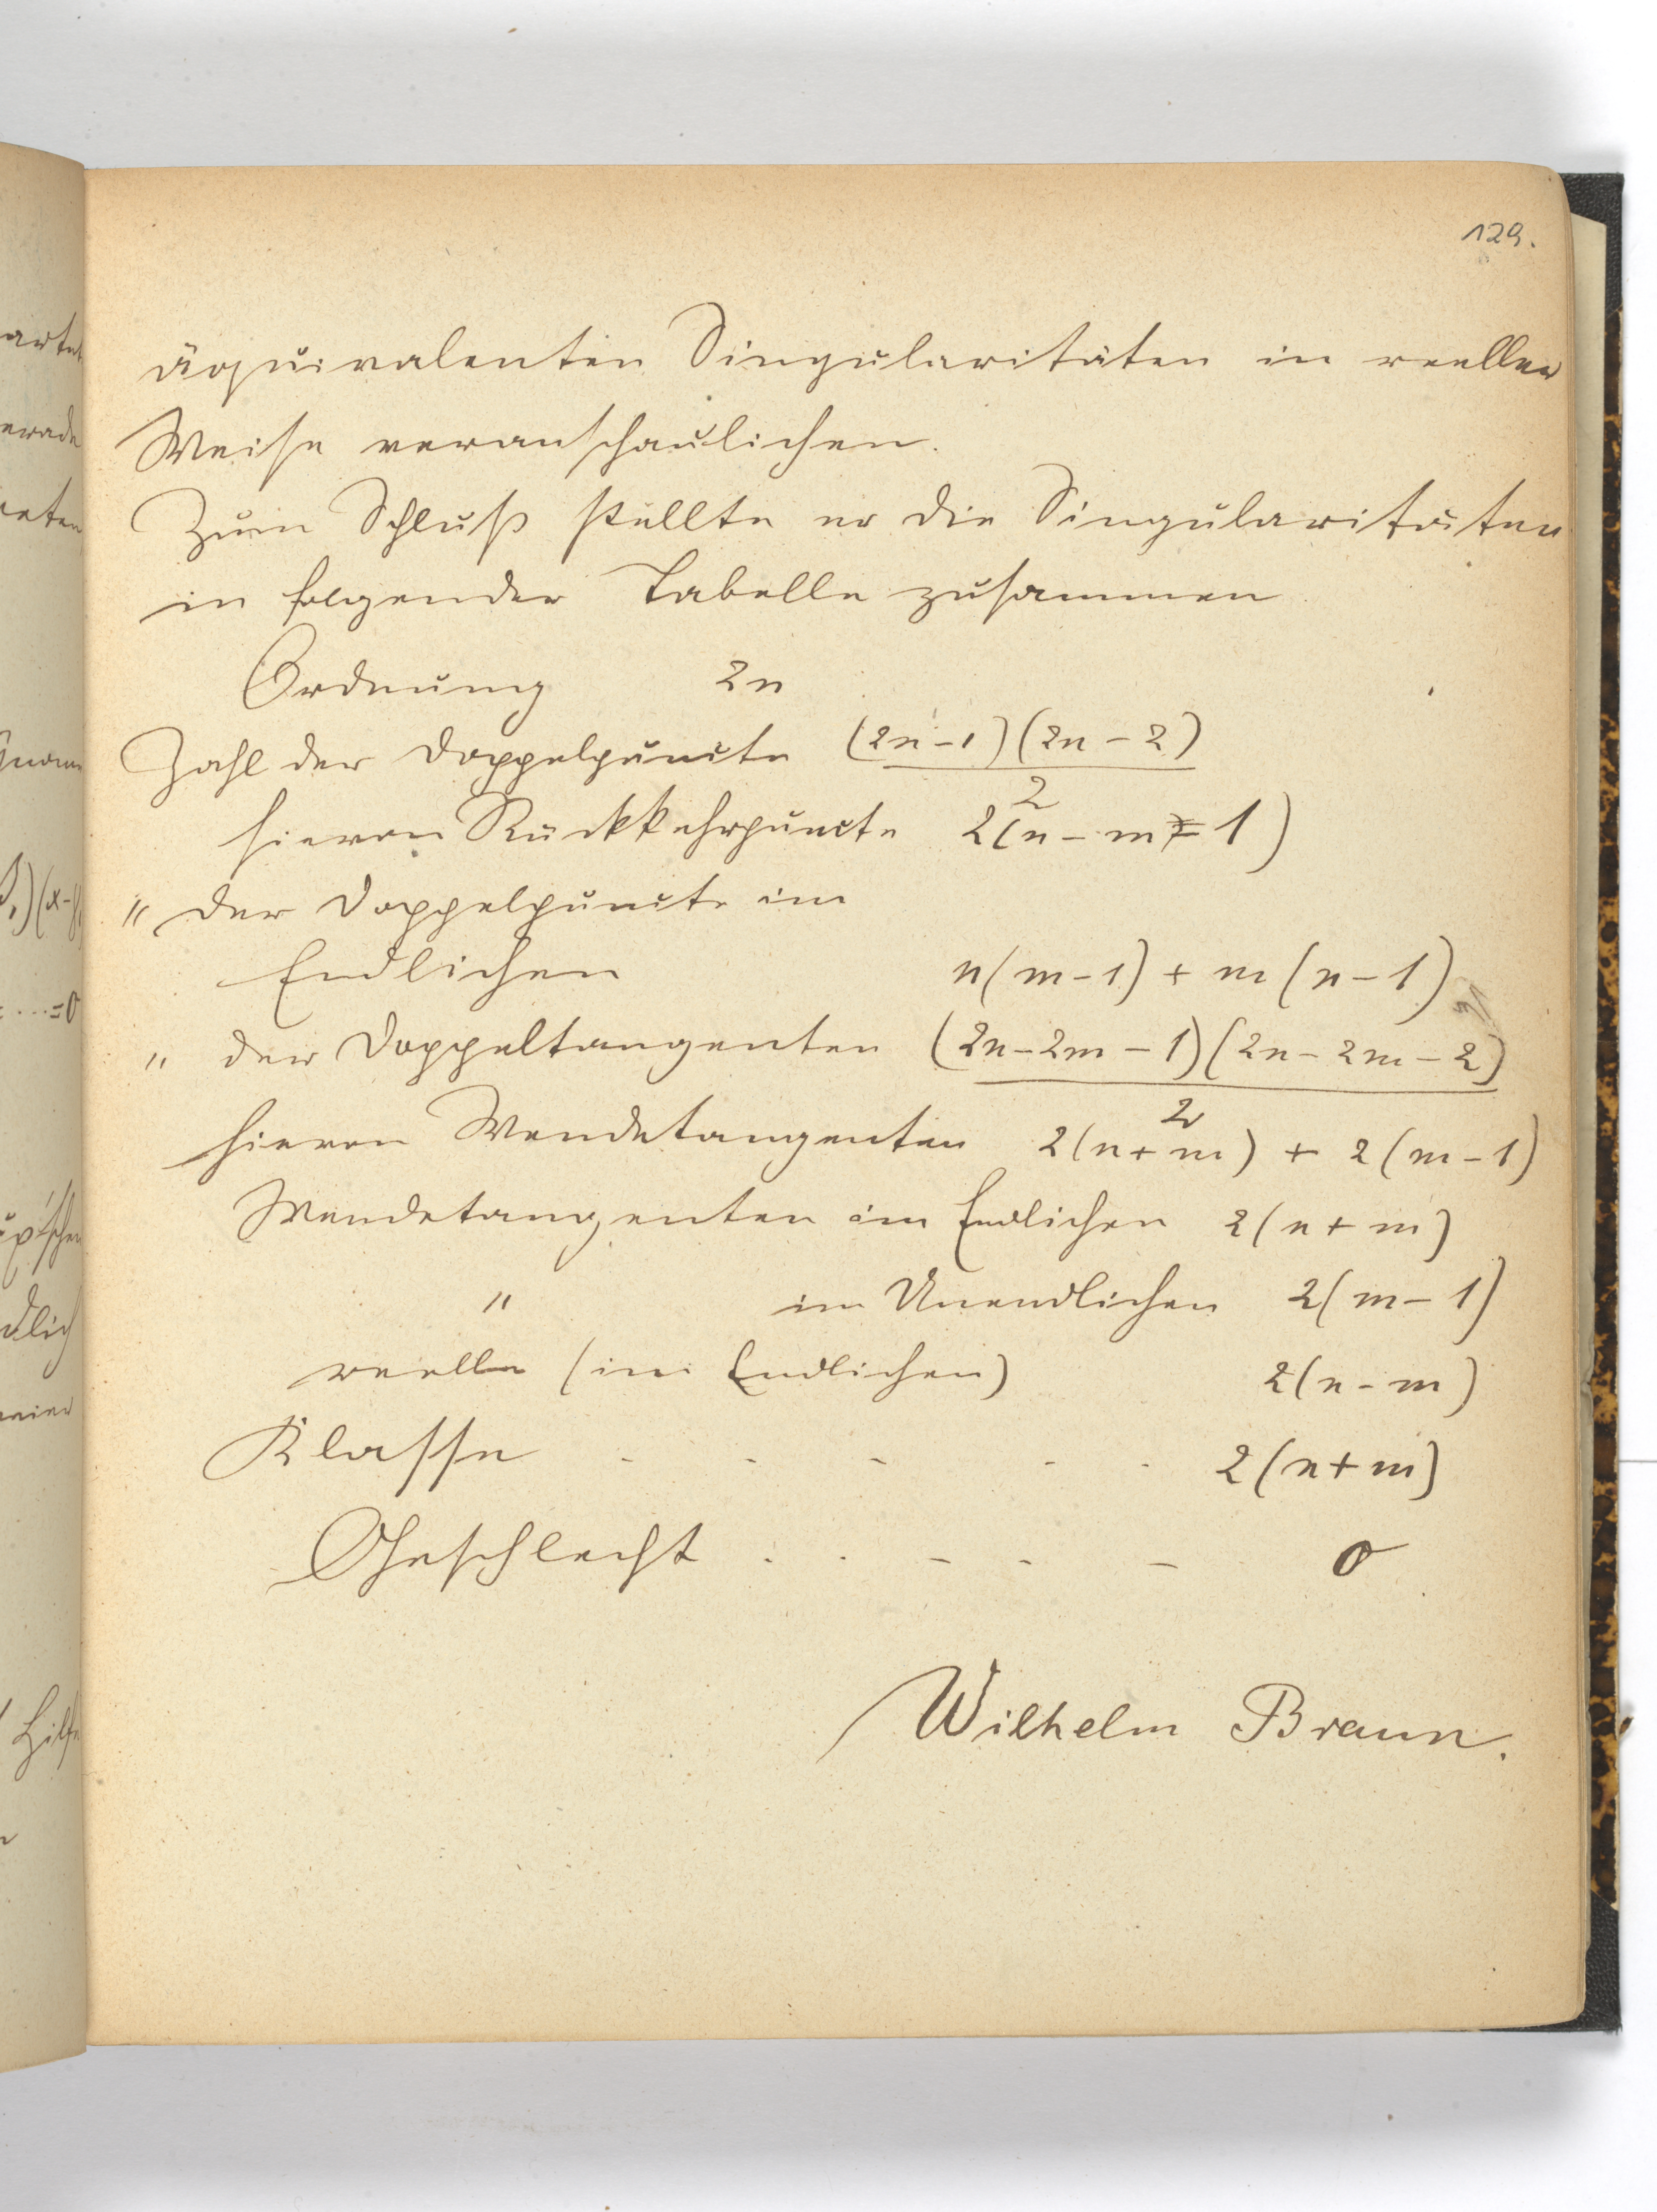 129.
äquivalenten Singularitäten in reeller
Weise veranschaulichen.
Zum Schluß stellte er die Singularitäten
in folgender Tabelle zusammen
Ordnung 2n
Zahl der Doppelpuncte (2n-1)(2n-2)
2
hievon Rückkehrpuncte 2(n-m-1)
" der Doppelpuncte im
Endlichen n(m-1) + m(n-1)
" der Doppeltangenten (2n-2m-1)(2n-2m-2)
2
hievon Wendetangenten 2(n+m) + 2(m-1)
Wendetangenten im Endlichen 2(n+m)
" im Unendlichen 2(m-1)
reelle (im Endlichen) 2(n-m)
Klasse - - - - - 2(n+m)
Geschlecht . . - - - 0
Wilhelm Braun.